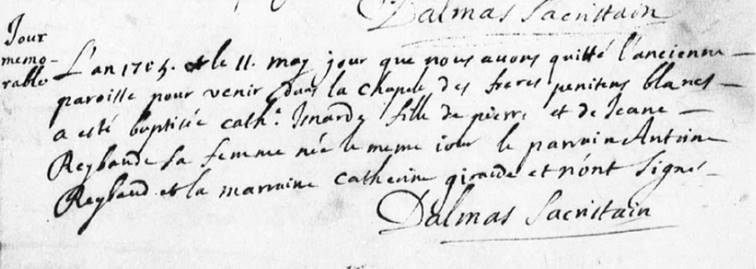 Dalmas Sacristain
Jour
memo-
rable
L'an 1705. et le 11. may jour que nous avons quitté l'ancienne
paroisse pour venir dans la chapele des freres penitens blancs
a esté baptisée cath.e Isnarde fille de pierre et de Jeane
Reybaude sa femme née le meme jour le parrain Antoine
Reybaud et la marraine catherine giraude et n'ont signé
Dalmas Sacristain